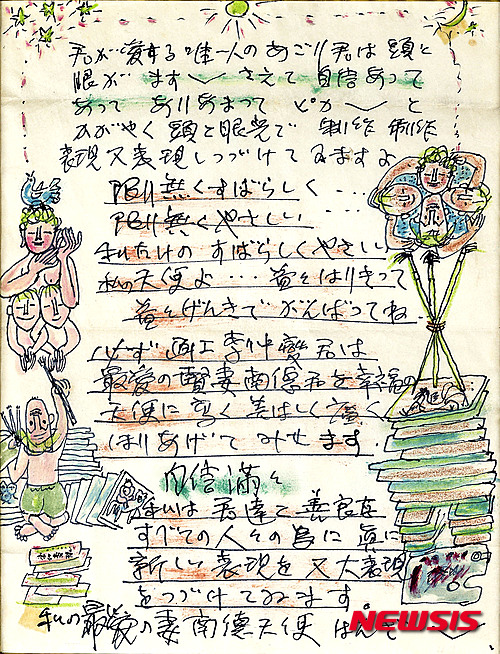 君が愛する唯一人のあごり君は頭と
眼がます〱さえて自信あって
あって ありあまって ピカ〱と
かがやく頭と眼光で 制作 制作
表現又表現しつづけてゐますよ
限り無くすばらしく・・・
限り無くやさしい
私だけのすばらしくやさしい
私の天使よ・・・益々はりきって
益々げんきでがんばってね.
必ず画工李仲燮君は
最愛の賢妻南德君を幸福の
天使に高く美はしく広く
ほりあげてみせます.
自信満々
私は君達と善良な
すべての人々の為に眞に
新しい表現を又大表現
をつづけてゐます。
私の最愛の妻南德天使
NEWSIS